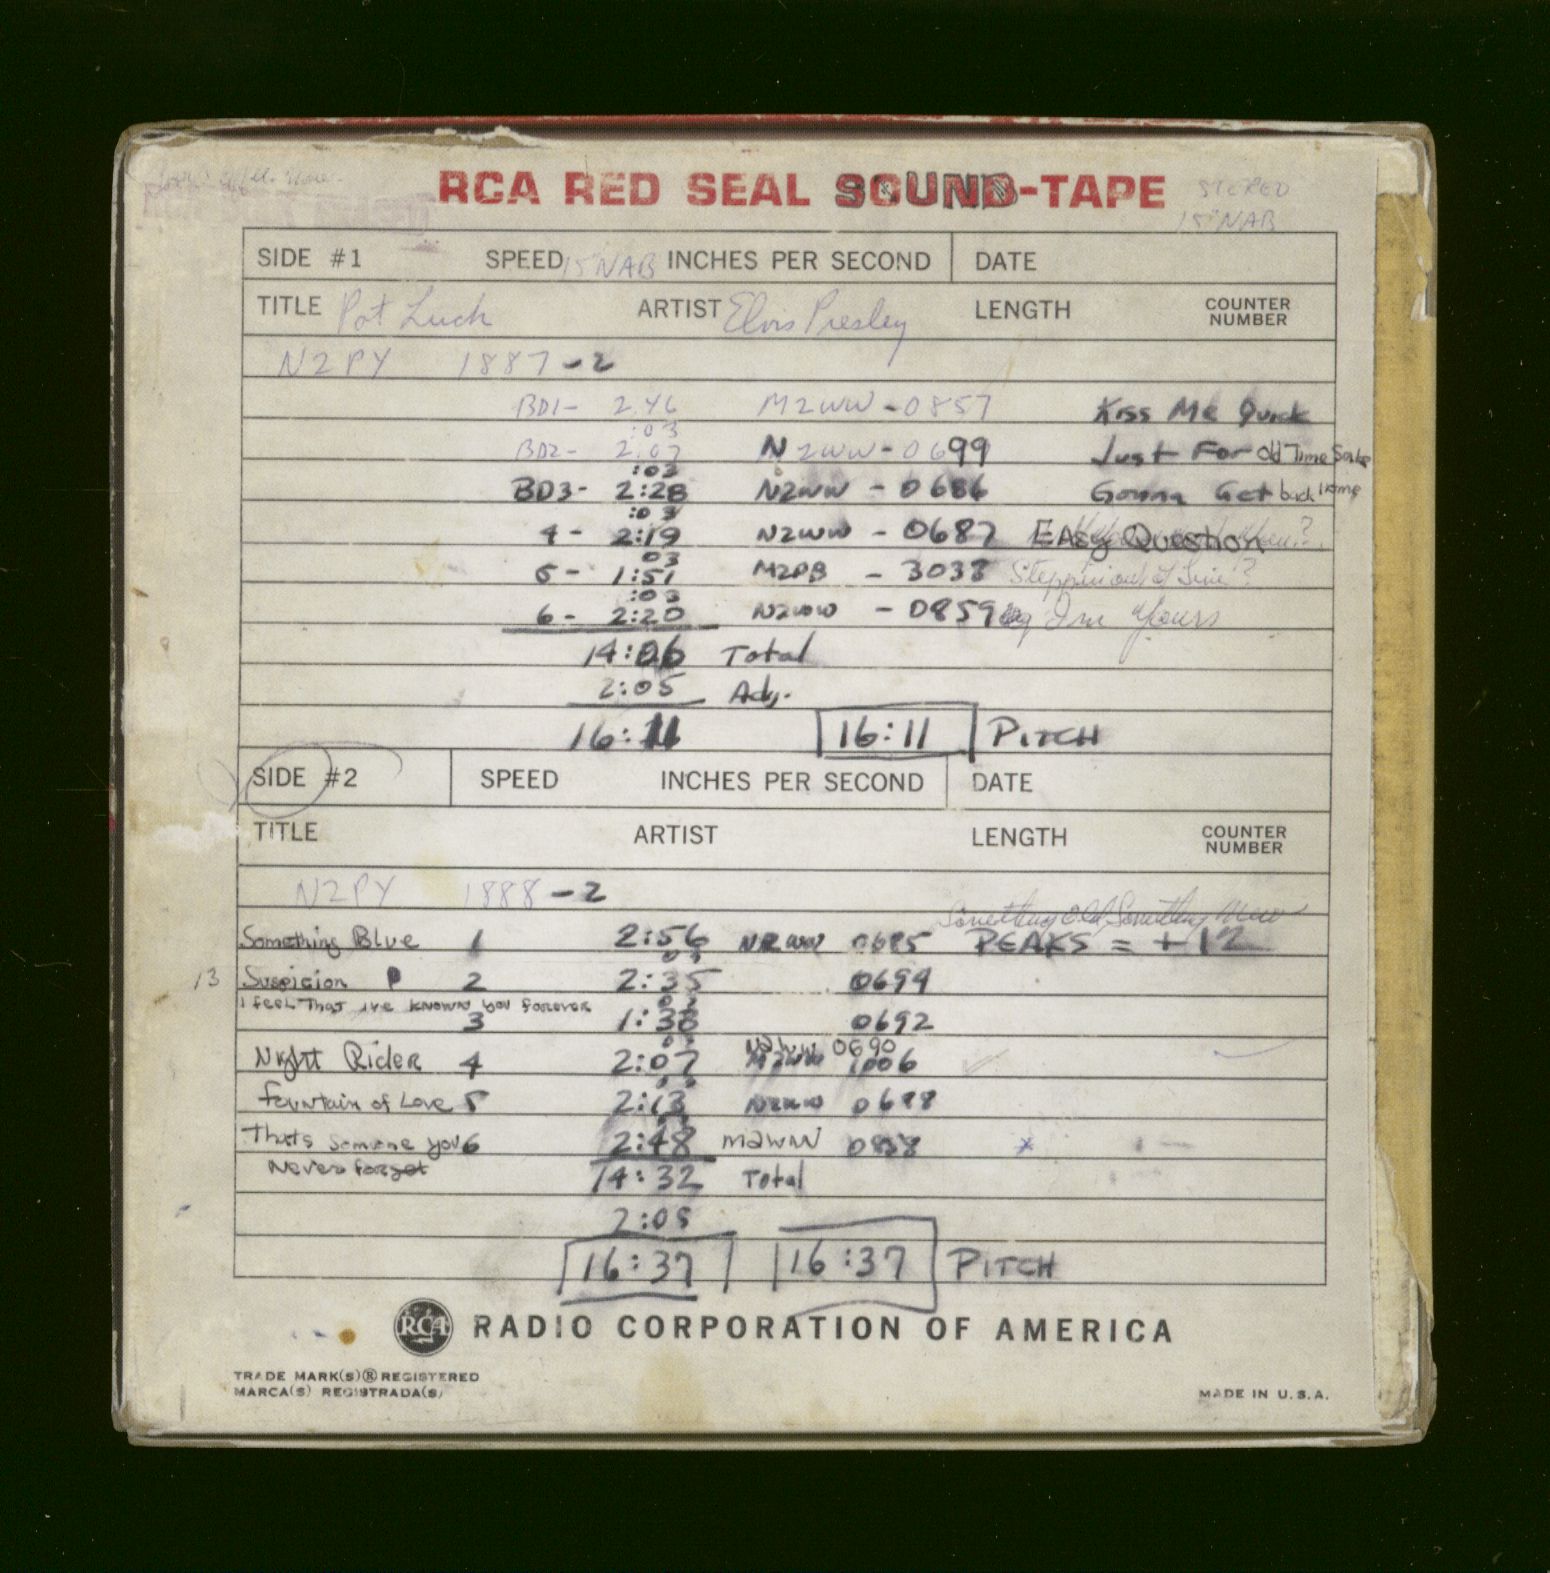 RCA RED SEAL SOUND-TAPE
STEREO
15" NAB
SIDE #1 SPEED 15" NAB INCHES PER SECOND DATE
TITLE Pot Luck ARTIST Elvis Presley LENGTH COUNTER NUMBER
N2PY 1887-2
BD1- 2.46 M2WW-0857 Kiss Me Quick
:03
BD2- 2.07 N2WW-0699 Just For Old Time Sake
:03
BD3- 2:28 N2WW-0686 Gonna Get back Home
:03
4- 2:19 N2WW-0687 EASy Question
03
5- 1:51 M2PB-3038 Steppin out of Line?
:03
6- 2:20 N2WW-0859 I'm Yours
14:06 Total
2:05 Adj.
16:11 16:11 PITCH
SIDE #2 SPEED INCHES PER SECOND DATE
TITLE ARTIST LENGTH COUNTER NUMBER
N2PY 1888-2
Something Old, Something New
Something Blue 1 2:56 N2WW 0685 PEAKS = +12
03
13 Suspicion 2 2:35 0694
03
I feel That ive known you forever
3 1:38 0692
03
N2WW 0690
Night Rider 4 2:07 M2WW 1006
Fountain of Love 5 2:13 N2WW 0688
Thats Someone you 6 2:48 M2WW 0858
Never forget
14:32 Total
2:05
16:37 16:37 PITCH
RCA RADIO CORPORATION OF AMERICA
TRADE MARK(S)® REGISTERED
MARCA(S) REGISTRADA(S)
MADE IN U.S.A.